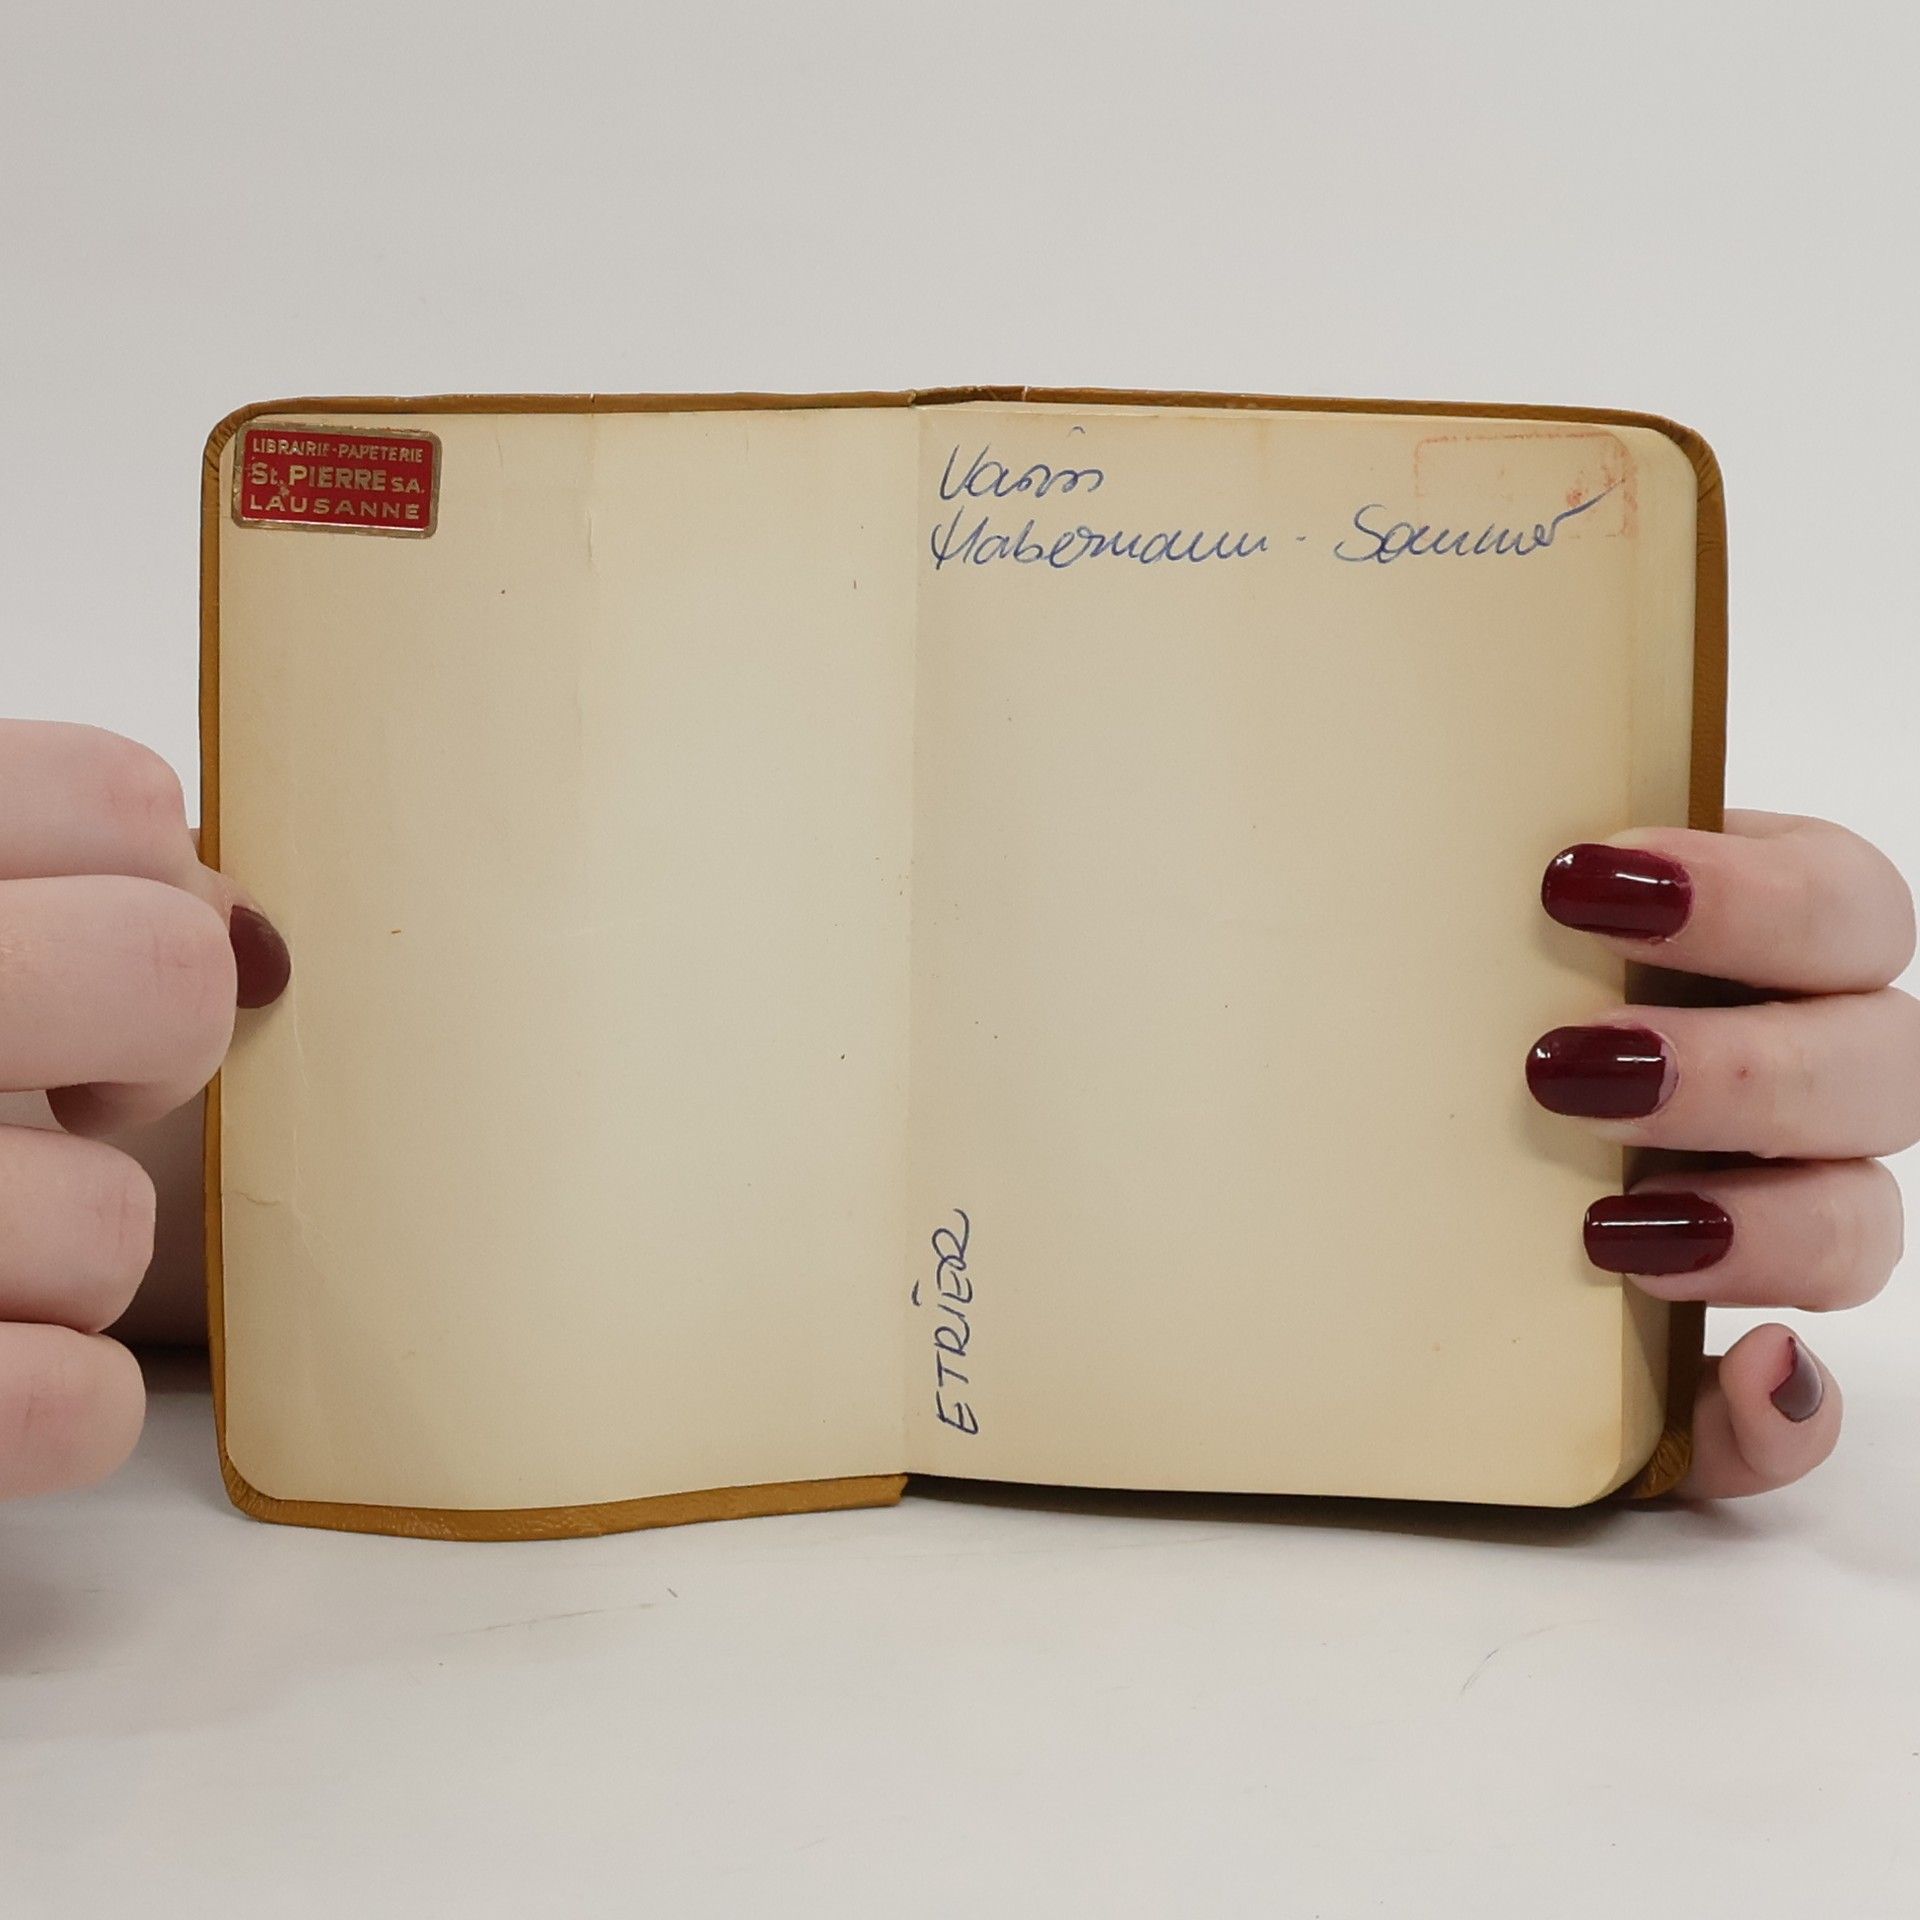 LIBRAIRIE-PAPETERIE
St. PIERRE S.A.
LAUSANNE
Habermann - Sommer
ETRIER